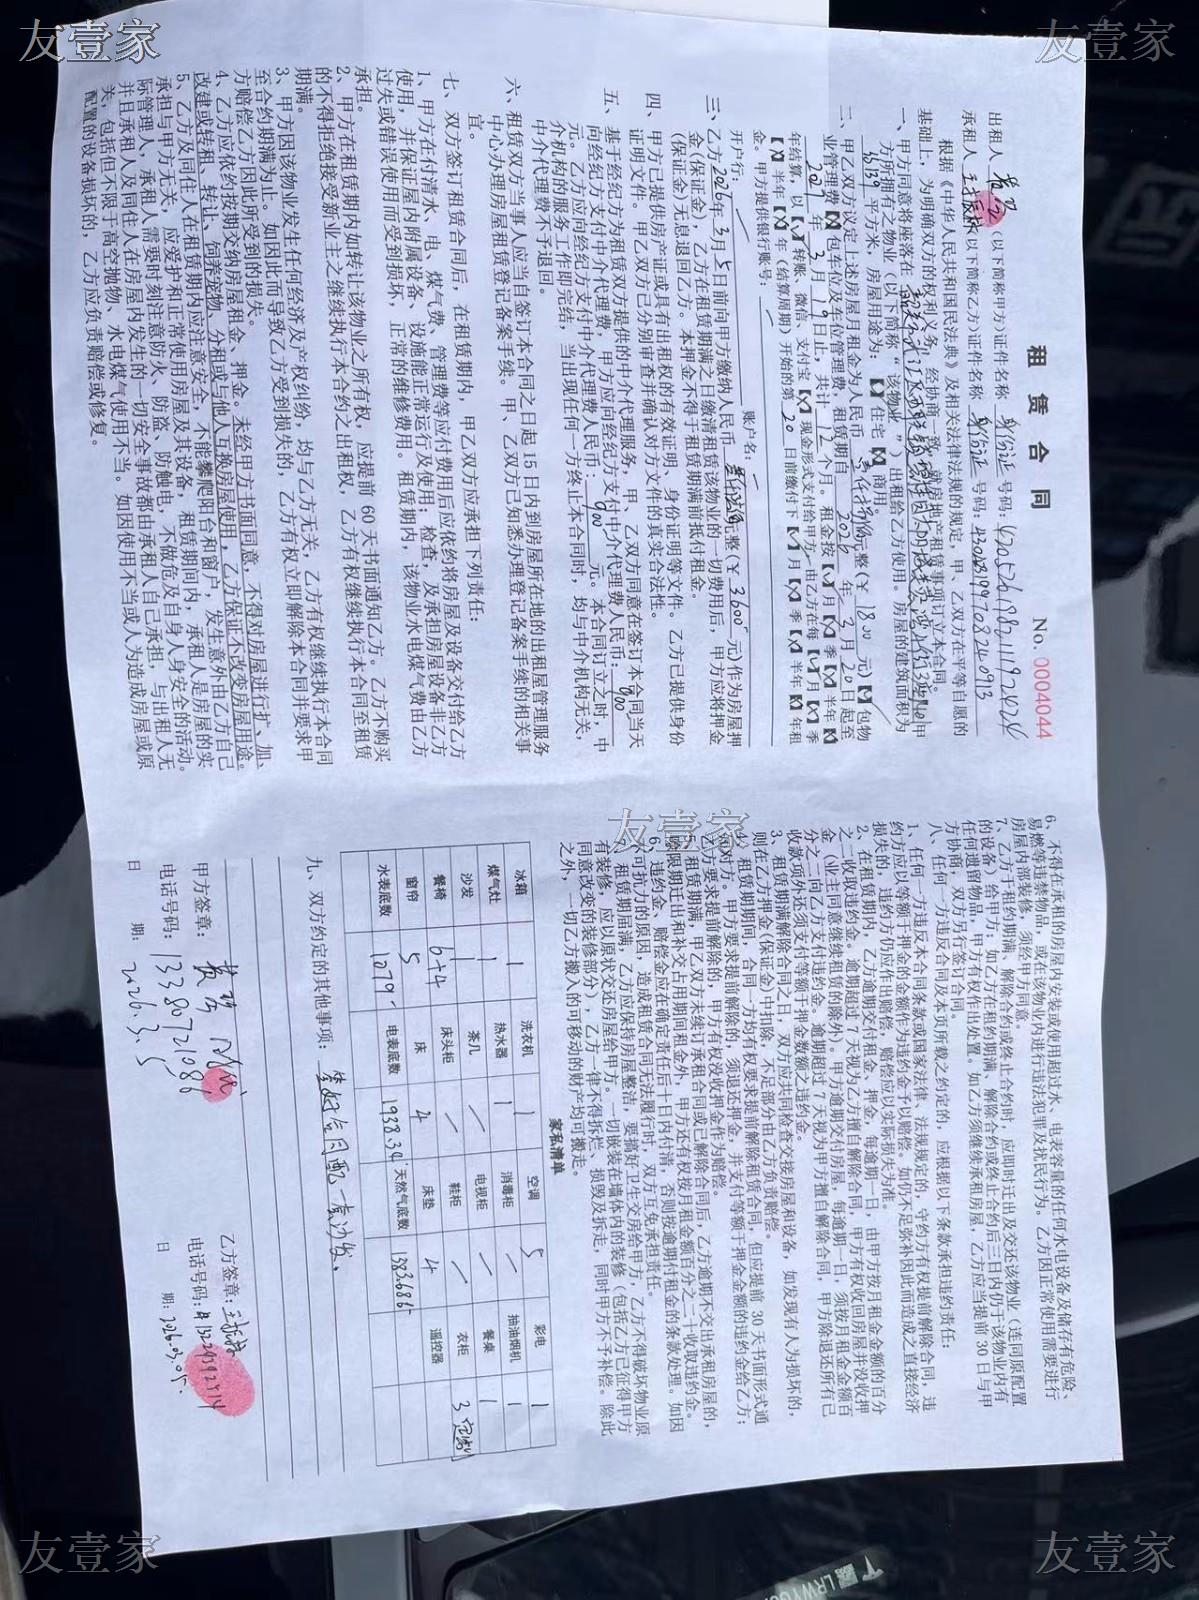 租 赁 合 同
No. 0004044
出租人 (以下简称甲方)证件名称 身份证 号码:
承租人 (以下简称乙方)证件名称 身份证 号码:
根据《中华人民共和国民法典》及相关法律法规的规定,甲、乙双方在平等自愿的
基础上,为明确双方的权利义务,经协商一致,就房地产租赁事项订立本合同。
一、甲方同意将座落在
方所拥有之物业(以下简称“该物业”)出租给乙方使用。房屋的建筑面积为
平方米,房屋用途为:【✓】住宅【 】商用。
二、甲乙双方议定上述房屋月租金为人民币 元整(¥ 1800 元)【✓】包物
业管理费【 】包车位及车位管理费,租赁期自 2026 年 3 月 20 日起至
2027 年 3 月 19 日止,共计 12 个月。租金按【✓】月【 】季【 】半年【 】
年结算,以【✓】转账、微信、支付宝【 】现金形式支付给甲方,由乙方在每【✓】月【 】季
【 】半年【 】年(结算周期)开始的第 20 日前缴付下【✓】月【 】季【 】半年【 】年租
金。甲方提供银行账号:
开户行: 账户名:
三、乙方2026年3月5日前向甲方缴纳人民币 元整(¥ 3600 元)作为房屋押
金(保证金),乙方在租赁期满之日缴清租赁该物业的一切费用后,甲方应将押金
(保证金)无息退回乙方。本押金不得于租赁期满前抵付租金。
四、甲方已提供房产证或具有出租权的有效证明、身份证明等文件。乙方已提供身份
证明文件。甲乙双方已分别审查并确认对方文件的真实合法性。
五、基于经纪方为租赁双方提供的中介代理服务,甲、乙双方同意在签订本合同当天
向经纪方支付中介代理费,甲方应向经纪方支付中介代理费人民币: 900
元。乙方应向经纪方支付中介代理费人民币: 900 元。本合同订立之时,中
介机构的服务工作即完结,当出现任何一方终止本合同时,均与中介机构无关,
中介代理费不予退回。
六、租赁双方当事人应当自签订本合同之日起 15 日内到房屋所在地的出租屋管理服务
中心办理房屋租赁登记备案手续。甲、乙双方已知悉办理登记备案手续的相关事
宜。
七、双方签订租赁合同后,在租赁期内,甲乙双方应承担下列责任:
1、甲方在付清水、电、煤气费、管理费等应付费用后应依约将房屋及设备交付给乙方
使用,并保证屋内附属设备、设施能正常运行及使用;检查,及承担房屋设备非乙方
过失或错误使用而受到损坏,正常的维修费用。租赁期内,该物业水电煤气费由乙方
承担。
2、甲方在租赁期内如转让该物业之所有权,应提前 60 天书面通知乙方。乙方不购买
的不得拒绝接受新业主之继续执行本合约之出租权,乙方有权继续执行本合同至租赁
期满。
3、甲方因该物业发生任何经济及产权纠纷,均与乙方无关,乙方有权继续执行本合同
至合约期满为止。如因此而导致乙方受到损失的,乙方有权立即解除本合同并要求甲
方赔偿乙方因此所受到的损失。
4、乙方应依约按期交纳房屋租金、押金。未经甲方书面同意,不得对房屋进行扩、加、
改建或转租、转让、饲养宠物、分租或与他人互换房屋使用,乙方保证不改变房屋用途。
5、乙方及同住人在租赁期内应注意安全,不能攀爬阳台和窗户,发生意外由乙方自己
承担与甲方无关,应爱护和正常使用房屋及其设备,租赁期间内,承租人是房屋的实
际管理人,承租人需要时刻注意防火、防盗、防触电,不做危及自身人身安全的活动。
并且承租人及同住人在房屋内发生的一切安全事故都由承租人自己承担,与出租人无
关,包括但不限于高空抛物、水电煤气使用不当。如因使用不当或人为造成房屋或原
配置的设备损坏的,乙方应负责赔偿或修复。
6、不得在承租的房屋内安装或使用超过水、电表容量的任何水电设备及储存有危险、
易燃等违禁物品,或在该物业内进行违法犯罪及扰民行为。乙方因正常使用需要进行
房屋内部装修,须经甲方同意。
7、乙方于租约期满、解除合约或终止合约时,应即时迁出及交还该物业(连同原配置
的设备)给甲方;如乙方在租约期满、解除合约或终止合约后三日内仍于该物业内有
任何遗留物品,甲方有权作出处置。如乙方须继续承租房屋,乙方应当提前 30 日与甲
方协商,双方另行签订合同。
八、任何一方违反合同及本页所载之约定的,应根据以下条款承担违约责任:
1、任何一方违反本合同条款或国家法律、法规规定的,守约方有权提前解除合同,违
约方应以等额于押金的金额作为违约金予以赔偿。如仍不足弥补因此而造成之直接经济
损失的,违约方仍应作出赔偿,赔偿应以实际损失为准。
2、在租赁期内,乙方逾期交付租金、押金,每逾期一日,由甲方按月租金金额的百分
之二收取违约金。逾期超过 7 天视为乙方擅自解除合同,甲方有权收回房屋并没收押
金(业主同意继续租赁的除外)。甲方逾期交付房屋,每逾期一日,须按月租金金额百
分之二向乙方支付违约金。逾期超过 7 天视为甲方擅自解除合同,甲方除退还所有已
收款项外还须支付等额于押金数额之违约金。
3、租赁期满解除合同之日,双方应共同检查交接房屋和设备,如发现有人为损坏的,
则在乙方押金(保证金)中扣除,不足部分由乙方负责赔偿。
4、租赁期期间,合同一方均有权要求提前解除租赁合同,但应提前 30 天书面形式通
知对方。甲方要求提前解除的,须退还押金,并支付等额于押金金额的违约金给乙方;
乙方要求提前解除的,甲方有权没收押金作为赔偿。
5、租赁期满,甲乙双方未续订承租合同或已解除合同后,乙方逾期不交出承租房屋的,
除限期迁出和补交占用期间租金外,甲方还有权按月租金额百分之二十收取违约金。
6、违约金、赔偿金应在确定责任后十日内付清,否则按逾期付租金的条款处理。如因
不可抗力的原因,造成租赁合同无法履行时,双方互免承担责任。
7、租赁期届满,乙方应保持房屋整洁,要搞好卫生交房给甲方,乙方不得破坏物业原
有装修,应以原状交还房屋给甲方。一切嵌装在墙体内的装修(包括乙方已征得甲方
同意改变的装修部分),乙方一律不得拆烂、损毁及拆走,同时甲方不予补偿。除此
之外,一切乙方搬入的可移动的财产均可搬走。
家私清单
冰箱 1 洗衣机 1 空调 5 彩电 1
煤气灶 1 热水器 1 消毒柜 / 抽油烟机 1
沙发 1 茶几 / 电视柜 / 餐桌 1
餐椅 6+4 床头柜 / 鞋柜 / 衣柜 3
窗帘 5 床 4 床垫 4 遥控器
水表底数 1079 电表底数 1938.34 天然气底数 1383.686
九、双方约定的其他事项:
甲方签章: 乙方签章:
电话号码: 13380721086 电话号码:
日 期: 2026.3.5 日 期: 2026.03.05.
友壹家
友壹家
友壹家
友壹家
友壹家